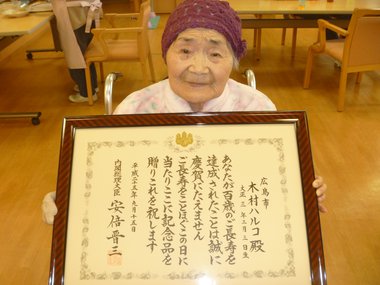 広島市
木村ハルコ殿
大正三年二月三日生
あなたが百歳のご長寿を
達成されたことは誠に
慶賀にたえません
ご長寿をことほぐこの日に
当たりここに記念品を
贈りこれを祝します
平成二十五年九月十五日
内閣総理大臣 安倍晋三